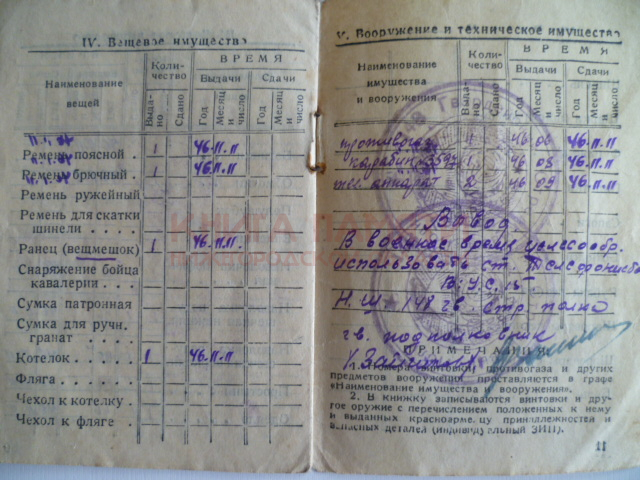 IV. Вещевое имущество
Наименование вещей
Количество
ВРЕМЯ
Выдачи
Сдачи
Выдано
Сдано
Год
Месяц и число
Год
Месяц и число
Ремень поясной . 1 46. 11. 11
Ремень брючный . 1 46. 11. 11
Ремень ружейный
Ремень для скатки
шинели . . . .
Ранец (вещмешок) 1 46. 11. 11.
Снаряжение бойца
кавалерии . . .
Сумка патронная
Сумка для ручн.
гранат . . . .
Котелок . . . . 1 46. 11. 11
Фляга . . . . .
Чехол к котелку .
Чехол к фляге . .
V. Вооружение и техническое имущество
Наименование имущества и вооружения
Количество
ВРЕМЯ
Выдачи
Сдачи
Выдано
Сдано
Год
Месяц и число
Год
Месяц и число
противогаз 1 46 06 46. 11. 11
карабин 1 46 08 46. 11. 11
тел. аппарат 2 46 09 46. 11. 11
Вывод
В военное время целесообр.
использовать ст. телефонистом
В.У.С. 15
Н. Ш 148 гв. стр. полка
гв. подполковник
ПРИМЕЧАНИЯ
1. Номера винтовки, противогаза и других
предметов вооружения проставляются в графе
«Наименование имущества и вооружения».
2. В книжку записываются винтовки и дру-
гое оружие с перечислением положенных к нему
и выданных красноармейцу принадлежностей и
запасных деталей (индивидуальный ЗИП).
11
КНИГА ПАМЯТИ
НИЖЕГОРОДСКОЙ